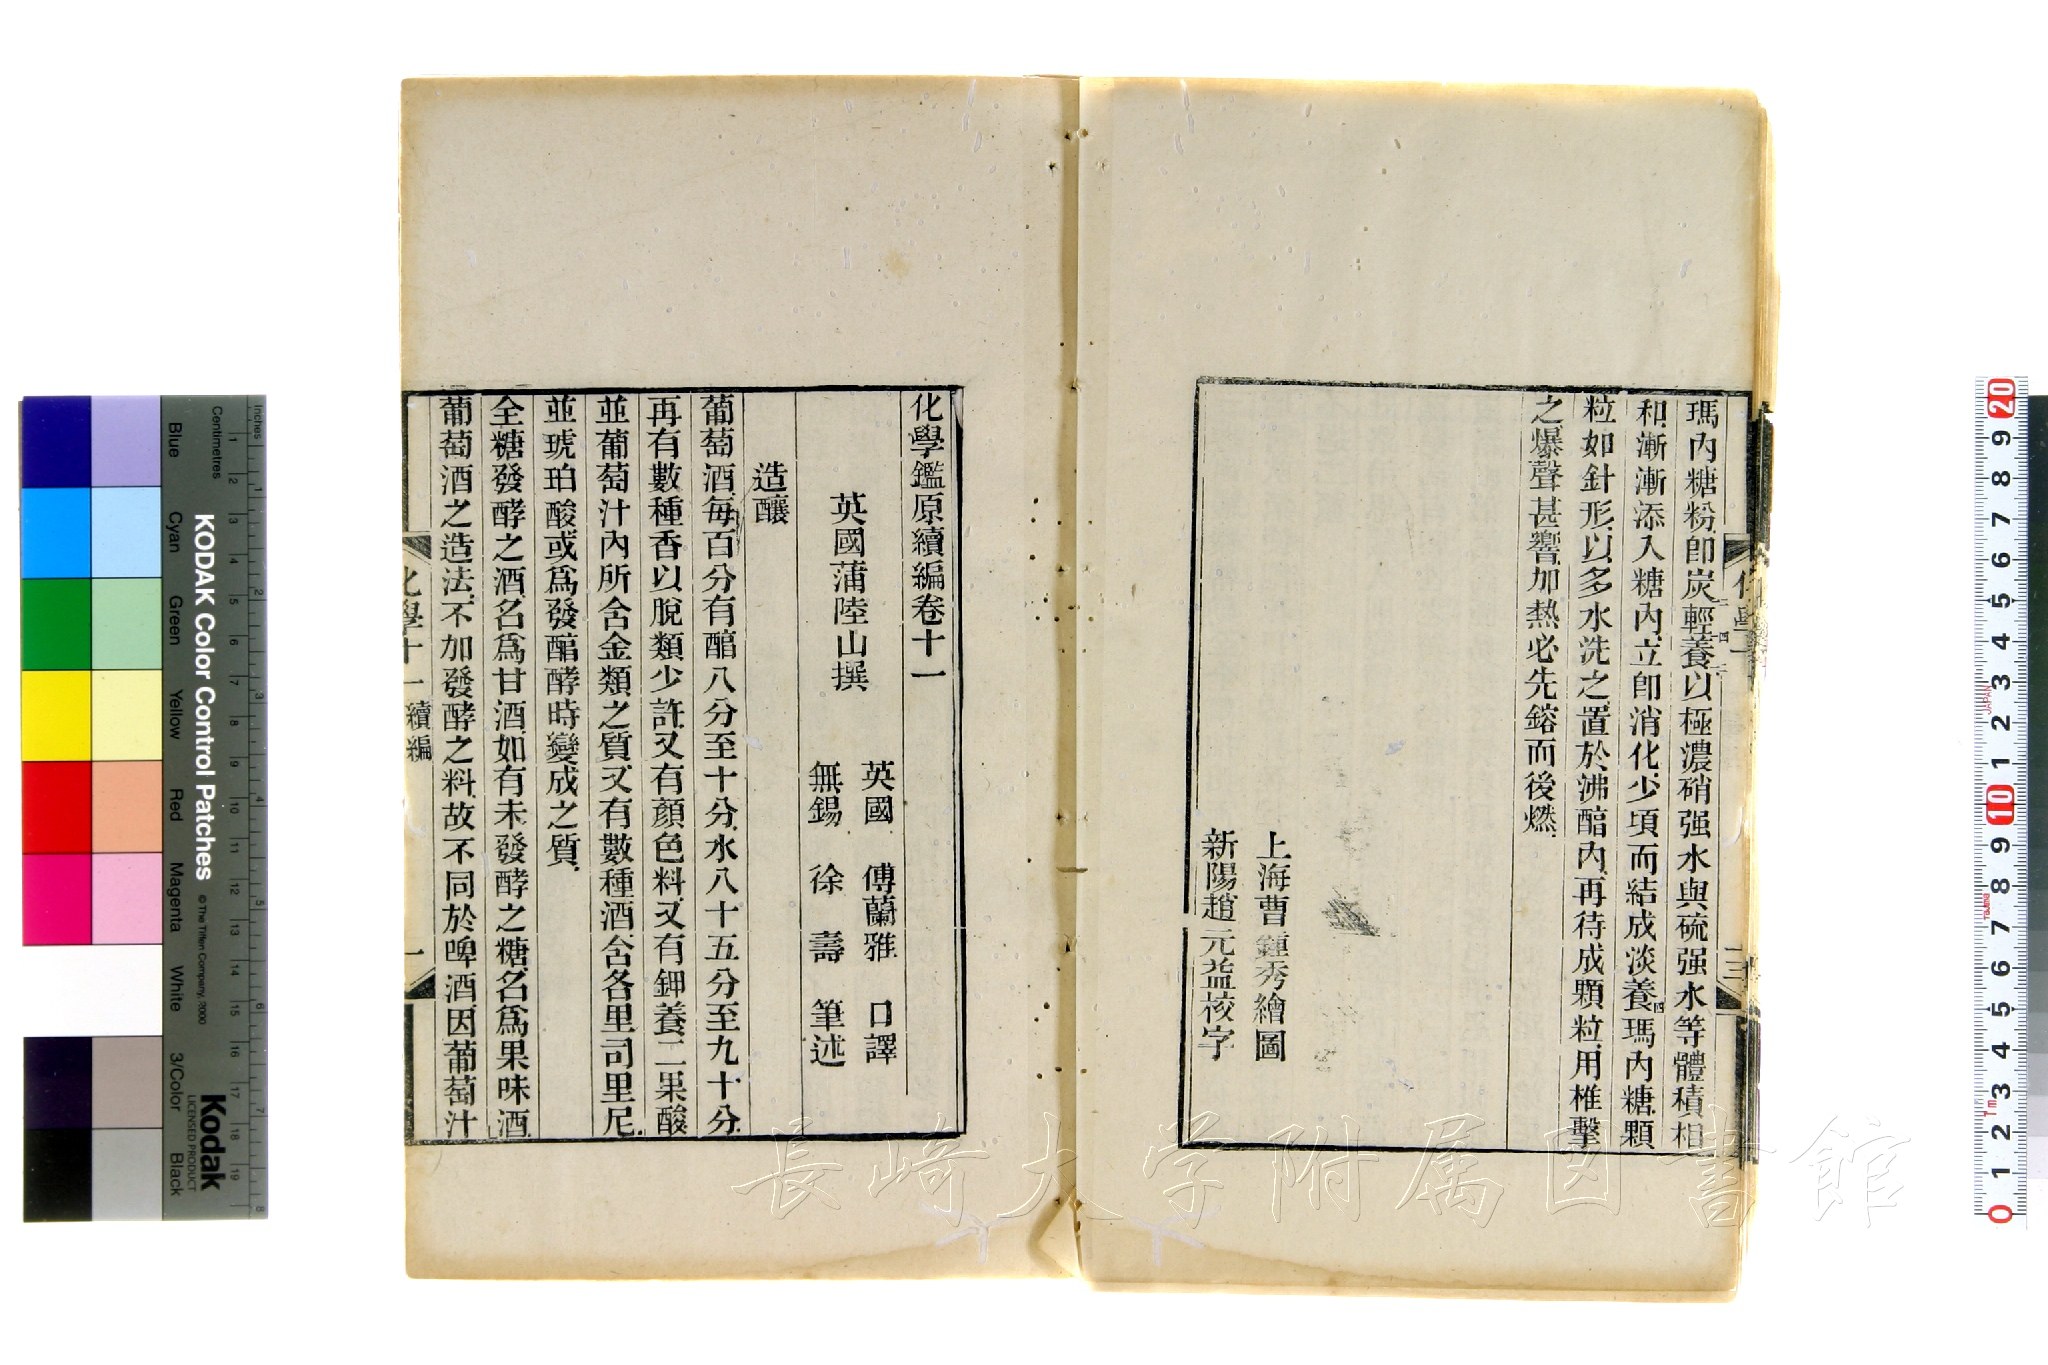 瑪內糖粉卽炭輕養以極濃硝强水與硫强水等體積相
和漸漸添入糖內立卽消化少頃而結成淡養四瑪內糖顆
粒如針形以多水洗之置於沸醕內再待成顆粒用椎擊
之爆聲甚響加熱必先鎔而後燃
上海曹鍾秀繪圖
新陽趙元益校字
化學鑑原續編卷十一
英國蒲陸山撰
英國 傅蘭雅 口譯
無錫 徐壽 筆述
造釀
葡萄酒每百分有醕八分至十分水八十五分至九十分
再有數種香以脫類少許又有顏色料又有鉀養二果酸
並葡萄汁內所含金類之質又有數種酒含各里司里尼
並琥珀酸或爲發醕酵時變成之質
全糖發酵之酒名爲甘酒如有未發酵之糖名爲果味酒
葡萄酒之造法不加發酵之料故不同於啤酒因葡萄汁
化學十一 續編
一
長崎大学附属図書館
KODAK Color Control Patches
© The Tiffen Company, 2000
Kodak
LICENSED PRODUCT
Inches
Centimetres
Blue
Cyan
Green
Yellow
Red
Magenta
White
3/Color
Black